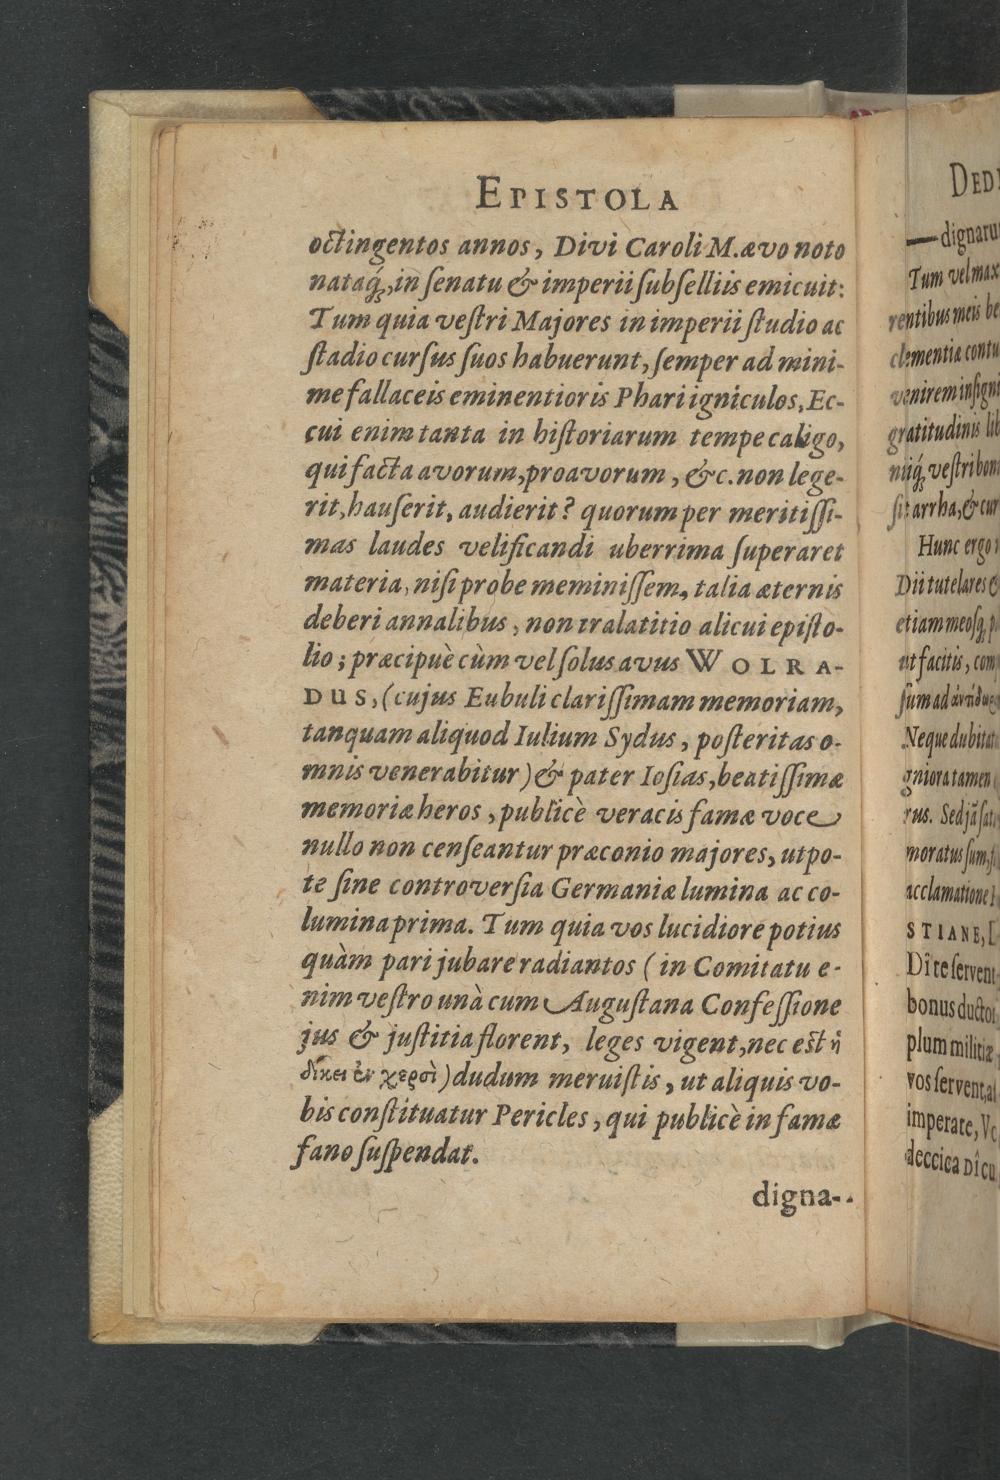 EPISTOLA
octingentos annos, Divi Caroli M. ævo noto
nataq́ꝫ, in ſenatu & imperii ſubſelliis emicuit:
Tum quia veſtri Majores in imperii ſtudio ac
ſtadio curſus ſuos habuerunt, ſemper ad mini-
me fallaceis eminentioris Phari igniculos, Ec-
cui enim tanta in hiſtoriarum tempe caligo,
qui facta avorum, proavorum, &c. non lege-
rit, hauſerit, audierit? quorum per meritiſſi-
mas laudes velificandi uberrima ſuperaret
materia, niſi probe meminiſſem, talia æternis
deberi annalibus, non tralatitio alicui epiſto-
lio; præcipuè cùm vel ſolus avus WOLRA-
DUS, (cujus Eubuli clariſſimam memoriam,
tanquam aliquod Iulium Sydus, poſteritas o-
mnis venerabitur) & pater Ioſias, beatiſſimæ
memoriæ heros, publicè veracis famæ voce
nullo non cenſeantur præconio majores, utpo-
te ſine controverſia Germaniæ lumina ac co-
lumina prima. Tum quia vos lucidiore potius
quàm pari jubare radiantos (in Comitatu e-
nim veſtro unà cum Auguſtana Confeſſione
jus & juſtitia florent, leges vigent, nec est ἡ
δίκει ἐν χερσὶ) dudum meruiſtis, ut aliquis vo-
bis conſtituatur Pericles, qui publicè in famæ
fano ſuſpendat.
digna-
DED
dignaru
Tum vel max
rentibus meis be
clementia contu
venirem inſigni
gratitudinis lib
niiq́ꝫ veſtri bon
ſit arrha, & cur
Hunc ergo
Dii tutelares &
etiam meoſq́ꝫ p
ut facitis, com
ſum ad
Neque dubitat
gniora tamen
rus. Sed jā ſat
moratus ſum, ſ
acclamatione
STIANE,
Dî te ſervent
bonus ductor
plum militiæ
vos ſervent, al
imperate, Vc
deccica Dî cu